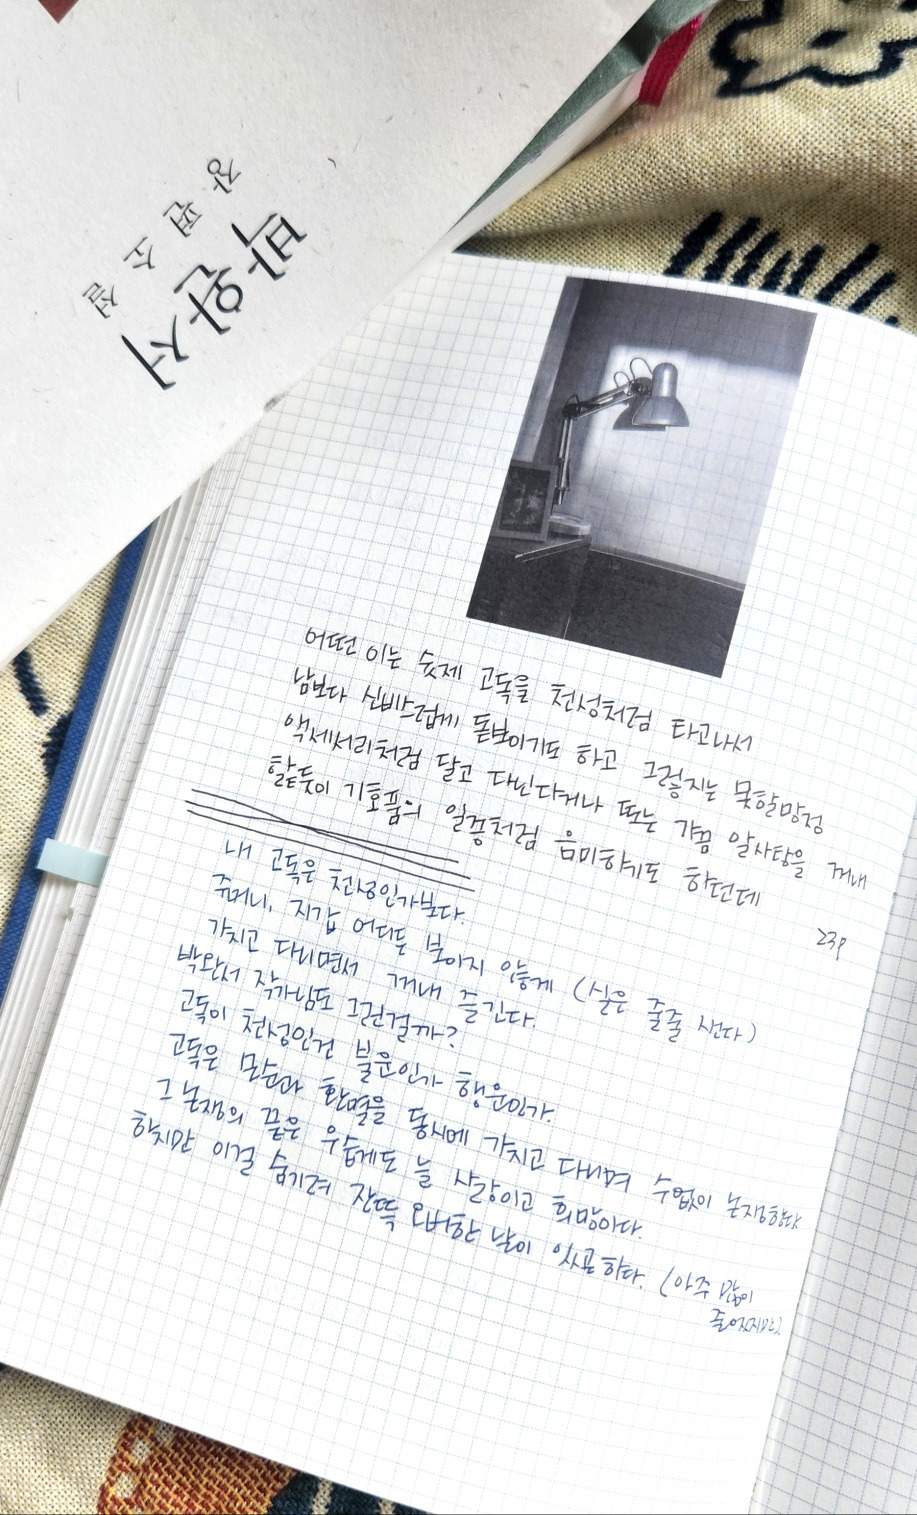 박완서
장편소설
어떤 이는 숫제 고독을 천성처럼 타고나서
남보다 신비스럽게 돋보이기도 하고 그렇지는 못할망정
액세서리처럼 달고 다닌다거나 또는 가끔 알사탕을 꺼내
핥듯이 기호품의 일종처럼 음미하기도 하던데
23p
내 고독은 천성인가보다.
주머니, 지갑 어디든 보이지 않게 (실은 줄줄 샌다)
가지고 다니면서 꺼내 즐긴다.
박완서 작가님도 그런걸까?
고독이 천성인건 불운인가 행운인가.
고독은 모순과 환멸을 동시에 가지고 다니며 수없이 논쟁한다
그 논쟁의 끝은 우습게도 늘 사랑이고 희망이다.
하지만 이걸 숨기려 잔뜩 오버한 날이 있곤하다. (아주 많이
줄었지만).